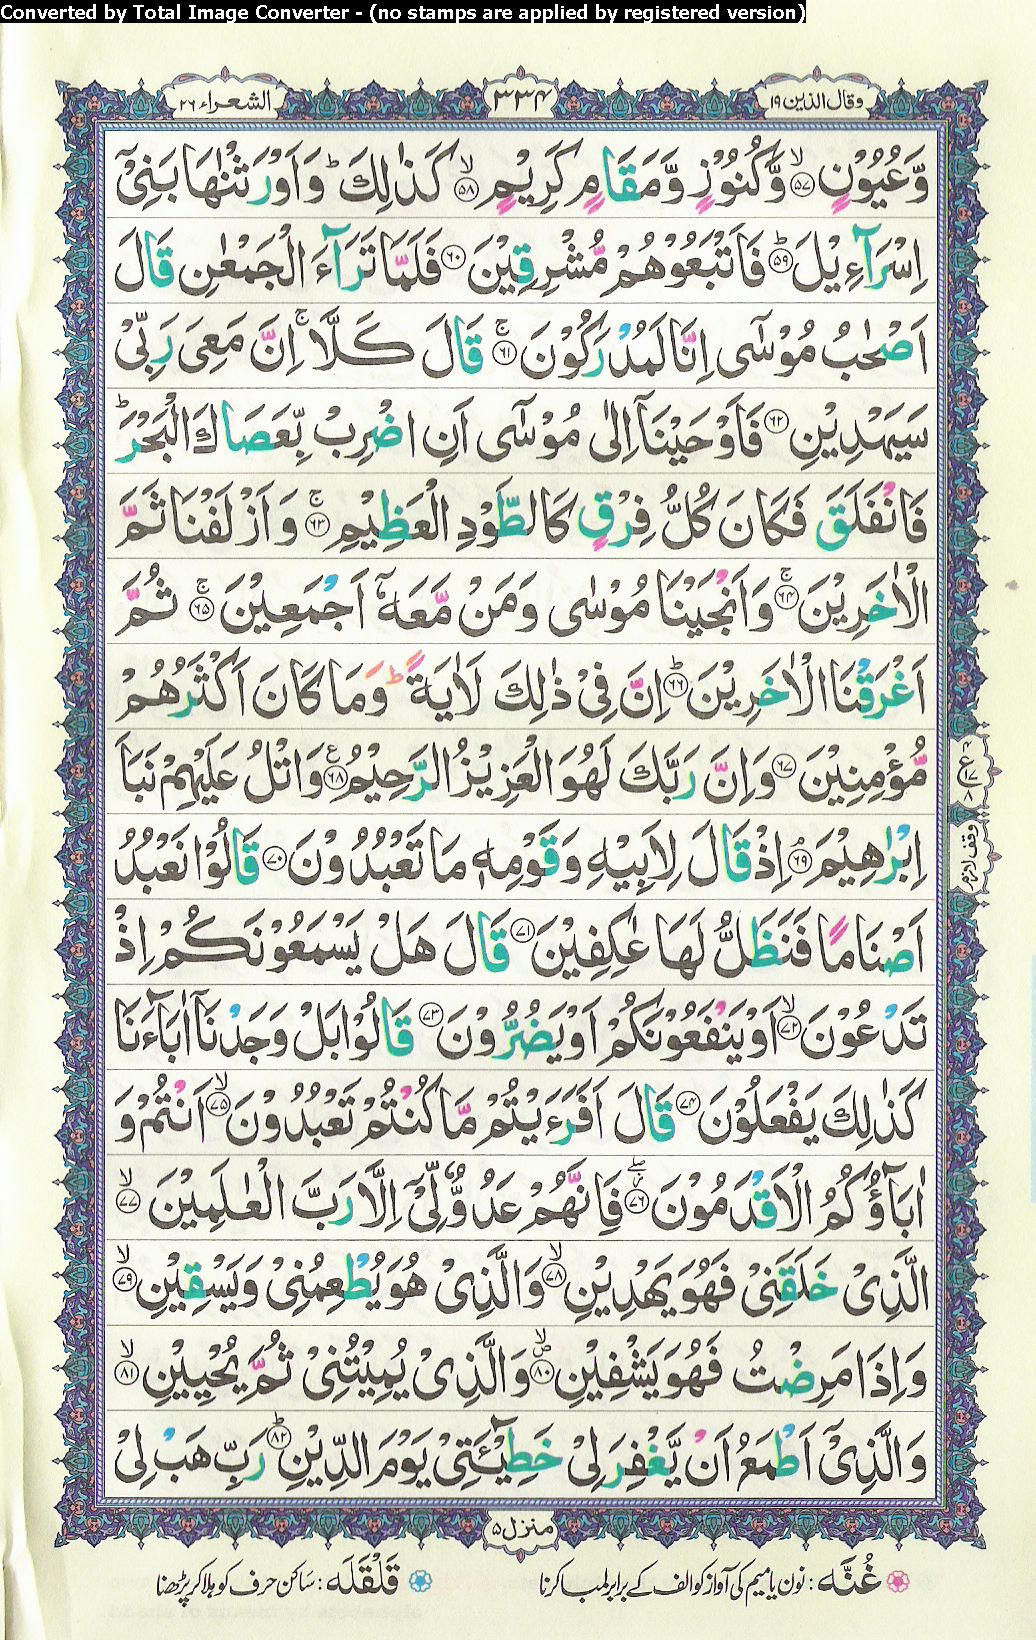 Converted by Total Image Converter - (no stamps are applied by registered version)
وقال الذین ۱۹
۳۳۴
الشعراء ۲۶
وَّعُیُوْنٍ ۙ﴿۵۷﴾ وَّكُنُوْزٍ وَّمَقَامٍ كَرِیْمٍ ۙ﴿۵۸﴾ كَذٰلِكَ ؕ وَاَوْرَثْنٰهَا بَنِیْۤ
اِسْرَآءِیْلَ ؕ﴿۵۹﴾ فَاَتْبَعُوْهُمْ مُّشْرِقِیْنَ ﴿۶۰﴾ فَلَمَّا تَرَآءَ الْجَمْعٰنِ قَالَ
اَصْحٰبُ مُوْسٰۤی اِنَّا لَمُدْرَكُوْنَ ۚ﴿۶۱﴾ قَالَ كَلَّا ۚ اِنَّ مَعِیَ رَبِّیْ
سَیَهْدِیْنِ ﴿۶۲﴾ فَاَوْحَیْنَاۤ اِلٰی مُوْسٰۤی اَنِ اضْرِبْ بِّعَصَاكَ الْبَحْرَ ؕ
فَانْفَلَقَ فَكَانَ كُلُّ فِرْقٍ كَالطَّوْدِ الْعَظِیْمِ ۚ﴿۶۳﴾ وَاَزْلَفْنَا ثَمَّ
الْاٰخَرِیْنَ ۚ﴿۶۴﴾ وَاَنْجَیْنَا مُوْسٰی وَمَنْ مَّعَهٗۤ اَجْمَعِیْنَ ۚ﴿۶۵﴾ ثُمَّ
اَغْرَقْنَا الْاٰخَرِیْنَ ؕ﴿۶۶﴾ اِنَّ فِیْ ذٰلِكَ لَاٰیَةً ؕ وَمَا كَانَ اَكْثَرُهُمْ
مُّؤْمِنِیْنَ ﴿۶۷﴾ وَاِنَّ رَبَّكَ لَهُوَ الْعَزِیْزُ الرَّحِیْمُ ﴿۶۸﴾ وَاتْلُ عَلَیْهِمْ نَبَاَ
اِبْرٰهِیْمَ ۘ﴿۶۹﴾ اِذْ قَالَ لِاَبِیْهِ وَقَوْمِهٖ مَا تَعْبُدُوْنَ ﴿۷۰﴾ قَالُوْا نَعْبُدُ
اَصْنَامًا فَنَظَلُّ لَهَا عٰكِفِیْنَ ﴿۷۱﴾ قَالَ هَلْ یَسْمَعُوْنَكُمْ اِذْ
تَدْعُوْنَ ۙ﴿۷۲﴾ اَوْ یَنْفَعُوْنَكُمْ اَوْ یَضُرُّوْنَ ﴿۷۳﴾ قَالُوْا بَلْ وَجَدْنَاۤ اٰبَآءَنَا
كَذٰلِكَ یَفْعَلُوْنَ ﴿۷۴﴾ قَالَ اَفَرَءَیْتُمْ مَّا كُنْتُمْ تَعْبُدُوْنَ ۙ﴿۷۵﴾ اَنْتُمْ وَ
اٰبَآؤُكُمُ الْاَقْدَمُوْنَ ﴿۷۶﴾ فَاِنَّهُمْ عَدُوٌّ لِّیْۤ اِلَّا رَبَّ الْعٰلَمِیْنَ ۙ﴿۷۷﴾
الَّذِیْ خَلَقَنِیْ فَهُوَ یَهْدِیْنِ ۙ﴿۷۸﴾ وَالَّذِیْ هُوَ یُطْعِمُنِیْ وَیَسْقِیْنِ ۙ﴿۷۹﴾
وَاِذَا مَرِضْتُ فَهُوَ یَشْفِیْنِ ﴿۸۰﴾ وَالَّذِیْ یُمِیْتُنِیْ ثُمَّ یُحْیِیْنِ ۙ﴿۸۱﴾
وَالَّذِیْۤ اَطْمَعُ اَنْ یَّغْفِرَ لِیْ خَطِیْٓئَتِیْ یَوْمَ الدِّیْنِ ؕ﴿۸۲﴾ رَبِّ هَبْ لِیْ
منزل ۵
غُنَّه : نون یا میم کی آواز کو الف کے برابر لمبا کرنا
قَلْقَلَه : ساکن حرف کو ہلا کر پڑھنا